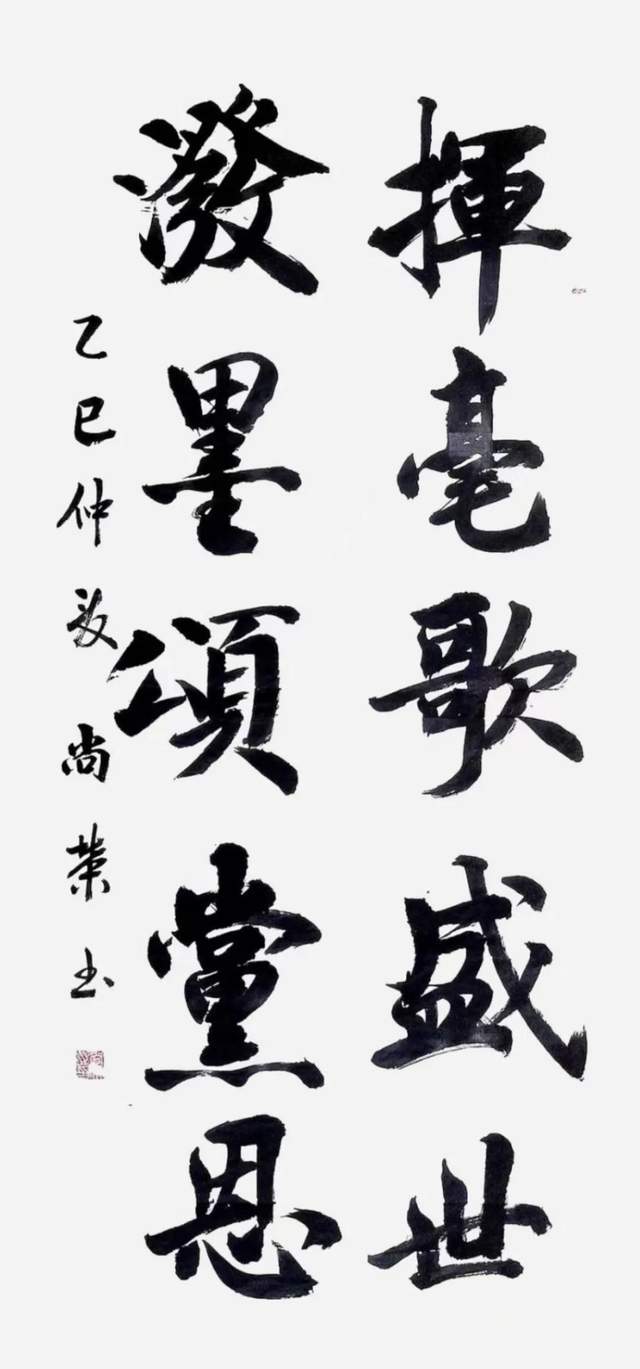 揮毫歌盛世
潑墨頌黨恩
乙巳仲夏 尚榮书